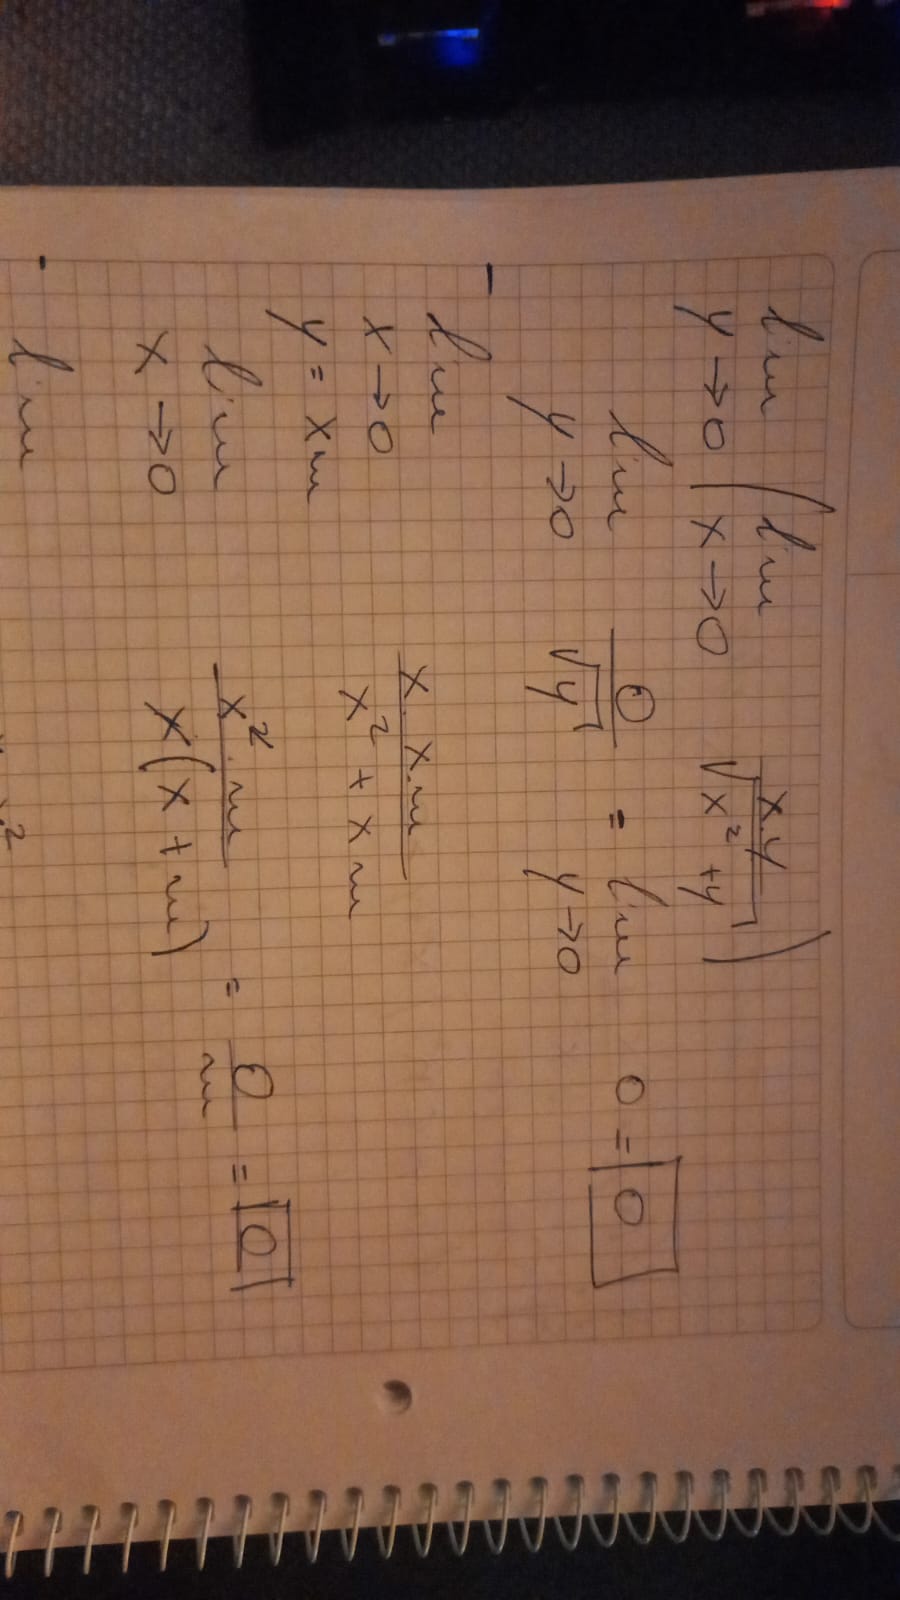 lim y→0 (lim x→0 x.y / √(x² + y))
lim y→0 0 / √y = lim y→0 0 = 0
- lim x→0 y = xm x. x.m / x² + xm
lim x→0 x². m / x(x + m) = 0 / m = 0
- lim